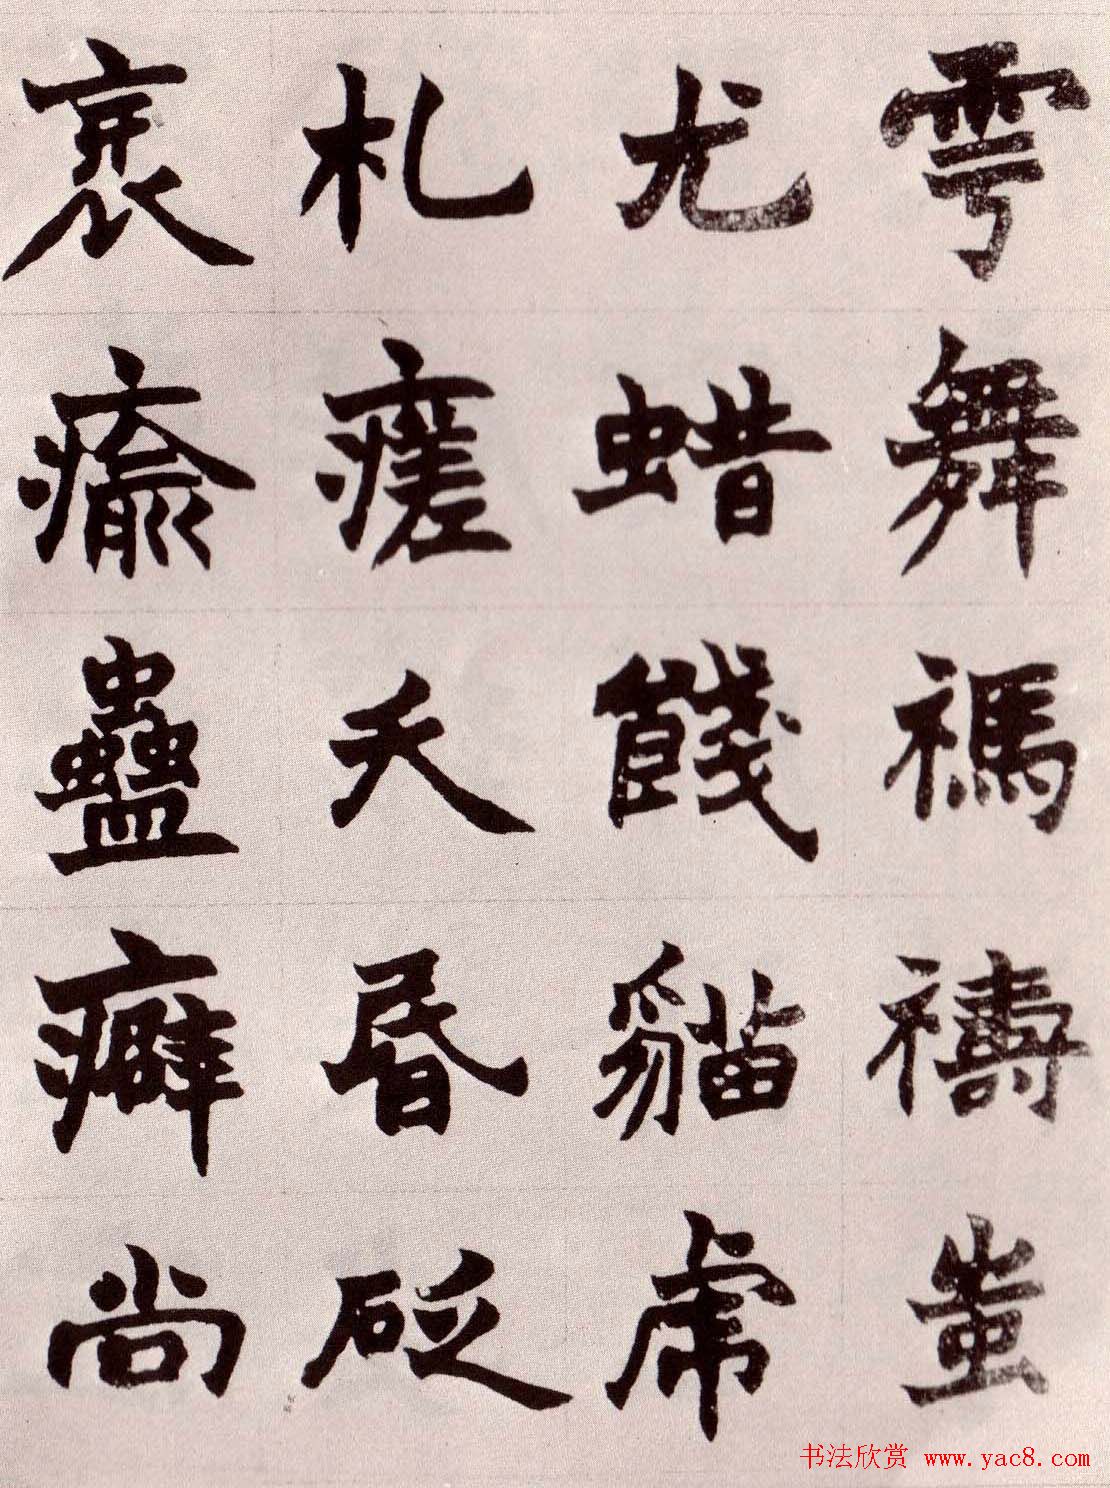 雩舞禡禱蚩
尤蜡餞貓虎
札瘥夭昬砭
衰瘉蠱癖尚
书法欣赏 www.yac8.com